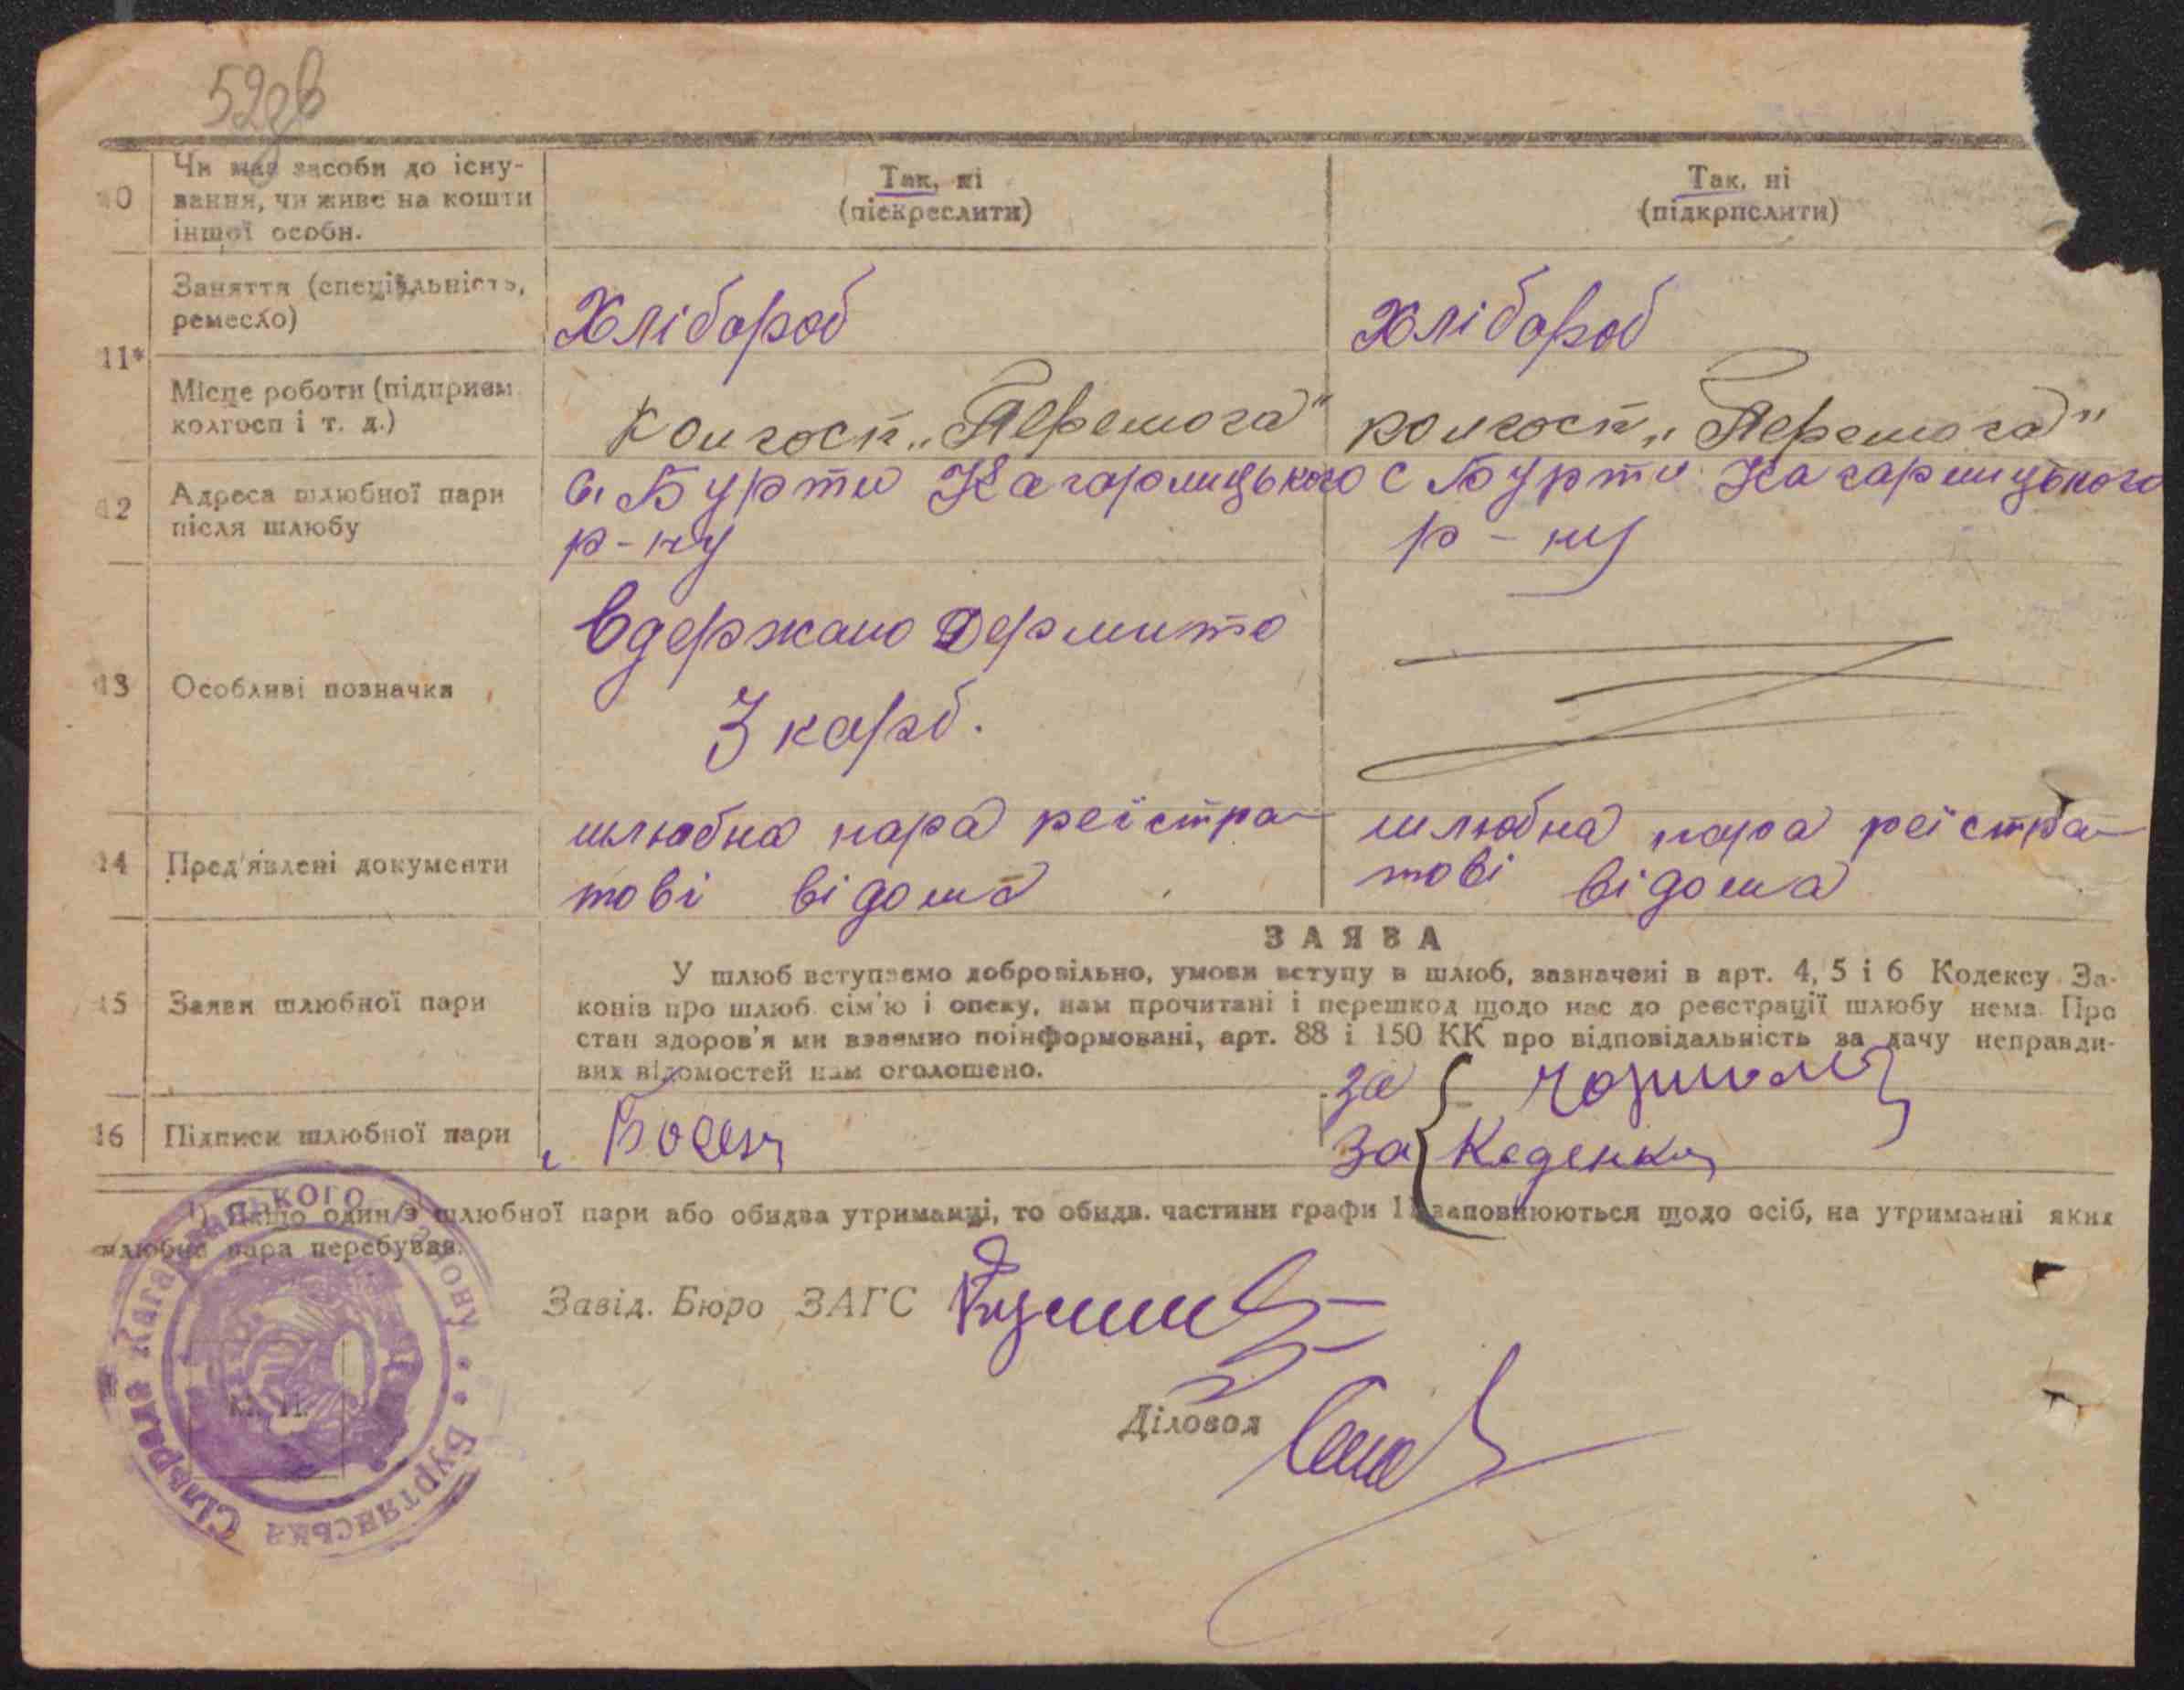 52зв
10 Чи має засоби до існу-
вання, чи живе на кошти
іншої особи.
Так, ні
(піскреслити)
Так, ні
(підкрпслити)
11*
Заняття (спеціяльність,
ремесло)
Хлібороб
Хлібороб
Місце роботи (підприєм.
колгосп і т. д.)
Колгосп „Перемога"
колгосп „Перемога"
12 Адреса шлюбної пари
після шлюбу
с. Бурти Кагарлицького
р-ну
с Бурти Кагарлицького
р-ну
13 Особливі позначки
Одержано Дермито
3 карб.
14 Пред'явлені документи
шлюбна пара реїстра-
тові відома
шлюбна пара реїстра-
тові відома
15 Заяви шлюбної пари
ЗАЯВА
У шлюб вступаємо добровільно, умови вступу в шлюб, зазначені в арт. 4, 5 і 6 Кодексу За-
конів про шлюб сім'ю і опеку, нам прочитані і перешкод щодо нас до реєстрації шлюбу нема. Про
стан здоров'я ми взаємно поінформовані, арт. 88 і 150 КК про відповідальність за дачу неправди-
вих відомостей нам оголошено.
16 Підписи шлюбної пари
за
за
¹) Якщо один з шлюбної пари або обидва утриманці, то обидв. частини графи 11 заповнюються щодо осіб, на утриманні яких
шлюбна пара перебуває.
Завід. Бюро ЗАГС
Діловод
М. П.
Буртянська Сільрада Кагарлицького району